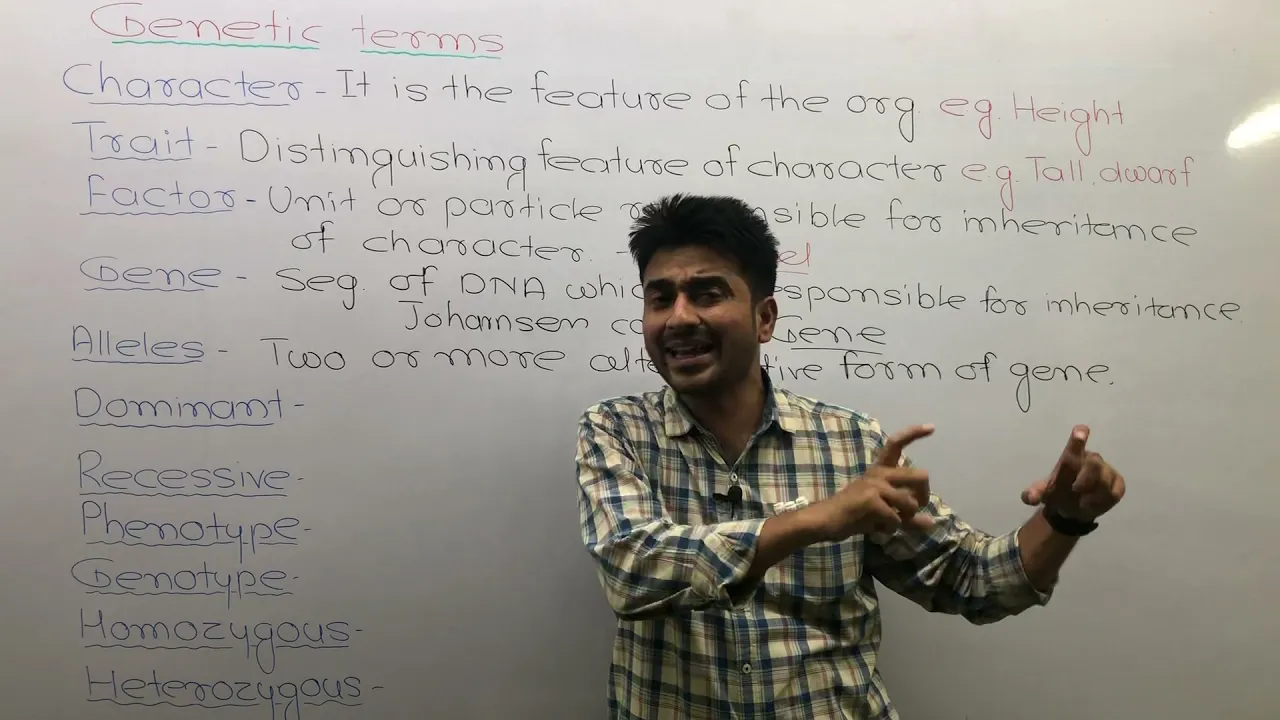 Genetic terms
Character - It is the feature of the org. eg. Height
Trait - Distinguishing feature of character e.g. Tall, dwarf
Factor - Unit or particle sible for inheritance
of character. -
Gene - Seg. of DNA sponsible for inheritance.
Johannsen Gene
Alleles - Two or more tive form of gene.
Dominant -
Recessive -
Phenotype -
Genotype -
Homozygous -
Heterozygous -